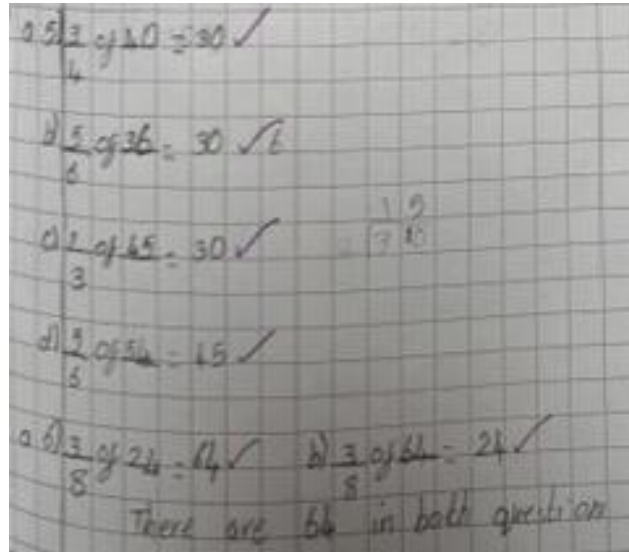 a 5) 3/4 of 40 = 30 ✓
b) 5/6 of 36 = 30 ✓
c) 2/3 of 45 = 30 ✓
d) 5/6 of 54 = 45 ✓
a 6) 3/8 of 24 = 64 ✓ b) 3/8 of 64 = 24 ✓
There are 64 in both question